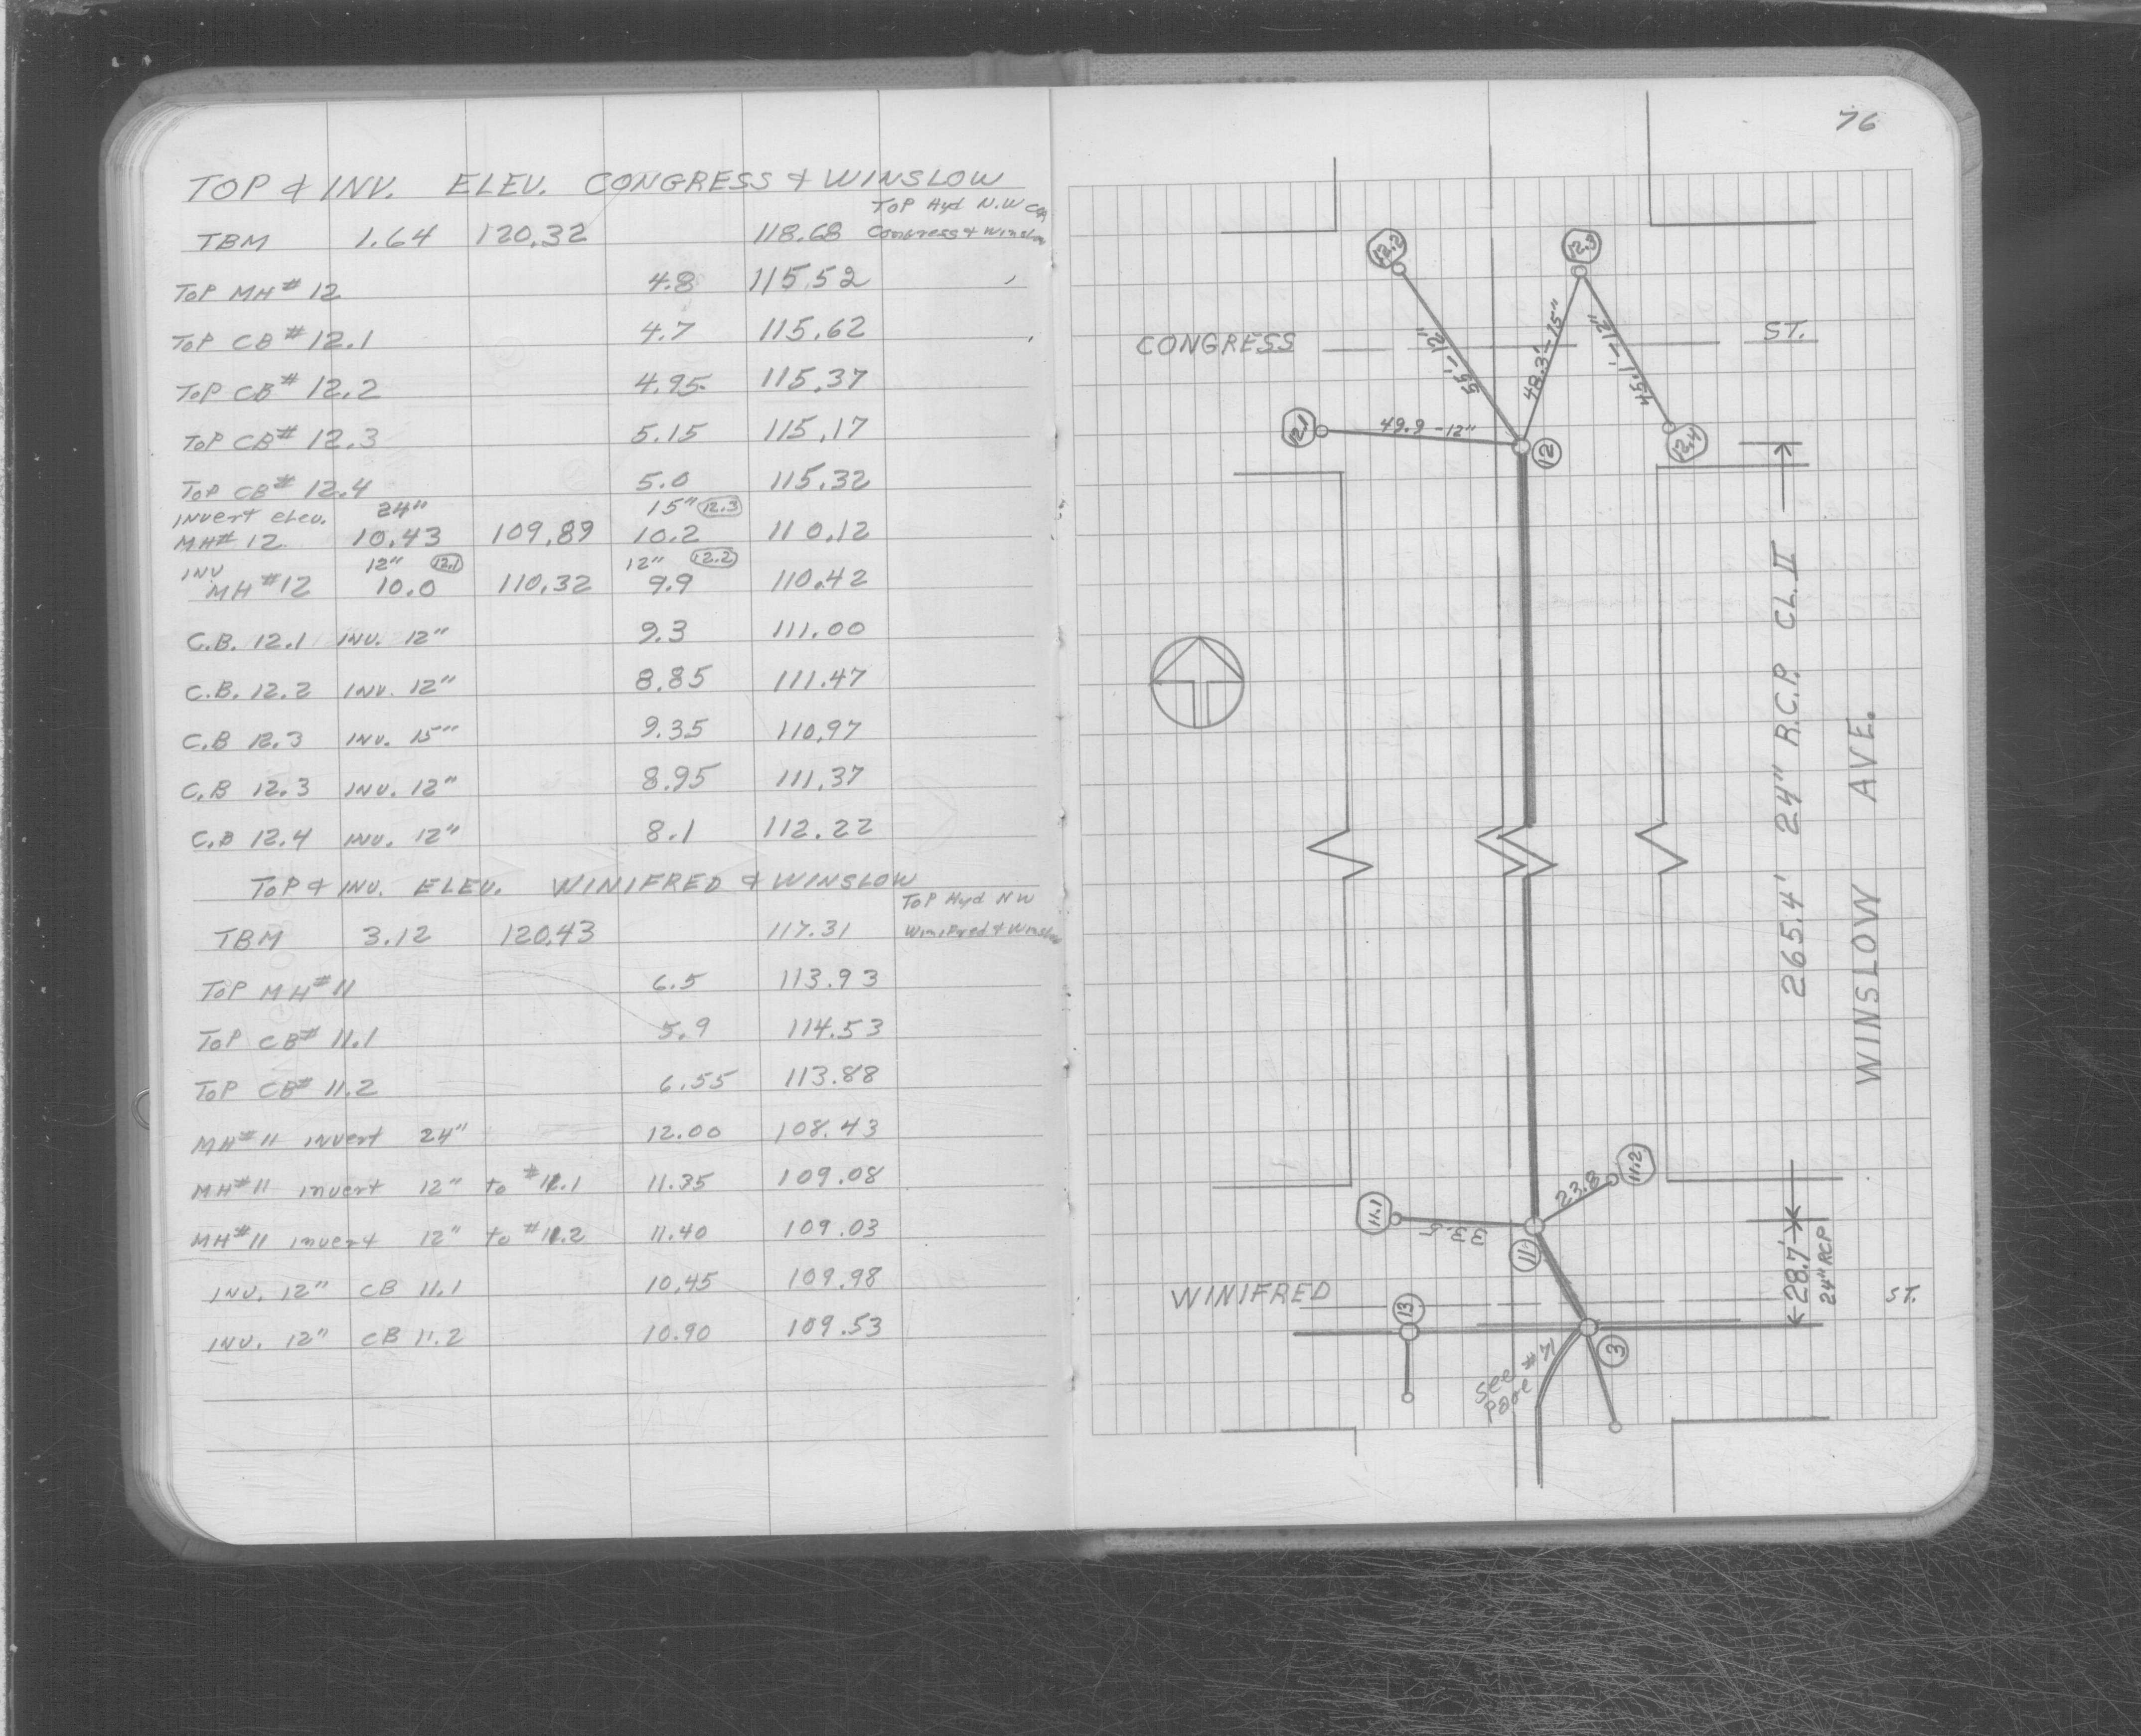 TOP & INV. ELEV. CONGRESS & WINSLOW
TOP Hyd N.W Cor
TBM 1.64 120.32 118.68 Congress & Winslow
TOP MH# 12 4.8 115.52
TOP CB# 12.1 4.7 115.62
TOP CB# 12.2 4.95 115.37
TOP CB# 12.3 5.15 115.17
TOP CB# 12.4 5.0 115.32
INVert elev. 24" 15" 12.3
MH# 12 10.43 109.89 10.2 110.12
INV 12" 12.1 12" 12.2
MH #12 10.0 110.32 9.9 110.42
C.B. 12.1 INV. 12" 9.3 111.00
C.B. 12.2 INV. 12" 8.85 111.47
C.B 12.3 INV. 15" 9.35 110.97
C.B 12.3 INV. 12" 8.95 111.37
C.B 12.4 INV. 12" 8.1 112.22
TOP & INV. ELEV. WINIFRED & WINSLOW
TOP Hyd NW
TBM 3.12 120.43 117.31 Winifred & Winslow
TOP MH#11 6.5 113.93
TOP CB# 11.1 5.9 114.53
TOP CB# 11.2 6.55 113.88
MH#11 INVert 24" 12.00 108.43
MH#11 invert 12" to #11.1 11.35 109.08
MH#11 invert 12" to #11.2 11.40 109.03
INV. 12" CB 11.1 10.45 109.98
INV. 12" CB 11.2 10.90 109.53
76
12.2
12.3
CONGRESS ST.
55'-12"
48.3'-15"
45.1'-12"
12.1
49.9-12"
12
12.4
265.4' 24" R.C.P. CL. II
WINSLOW AVE.
11.1
33.5
23.8
11.2
11
28.7'
24" RCP
WINIFRED ST.
13
3
See
Page #71